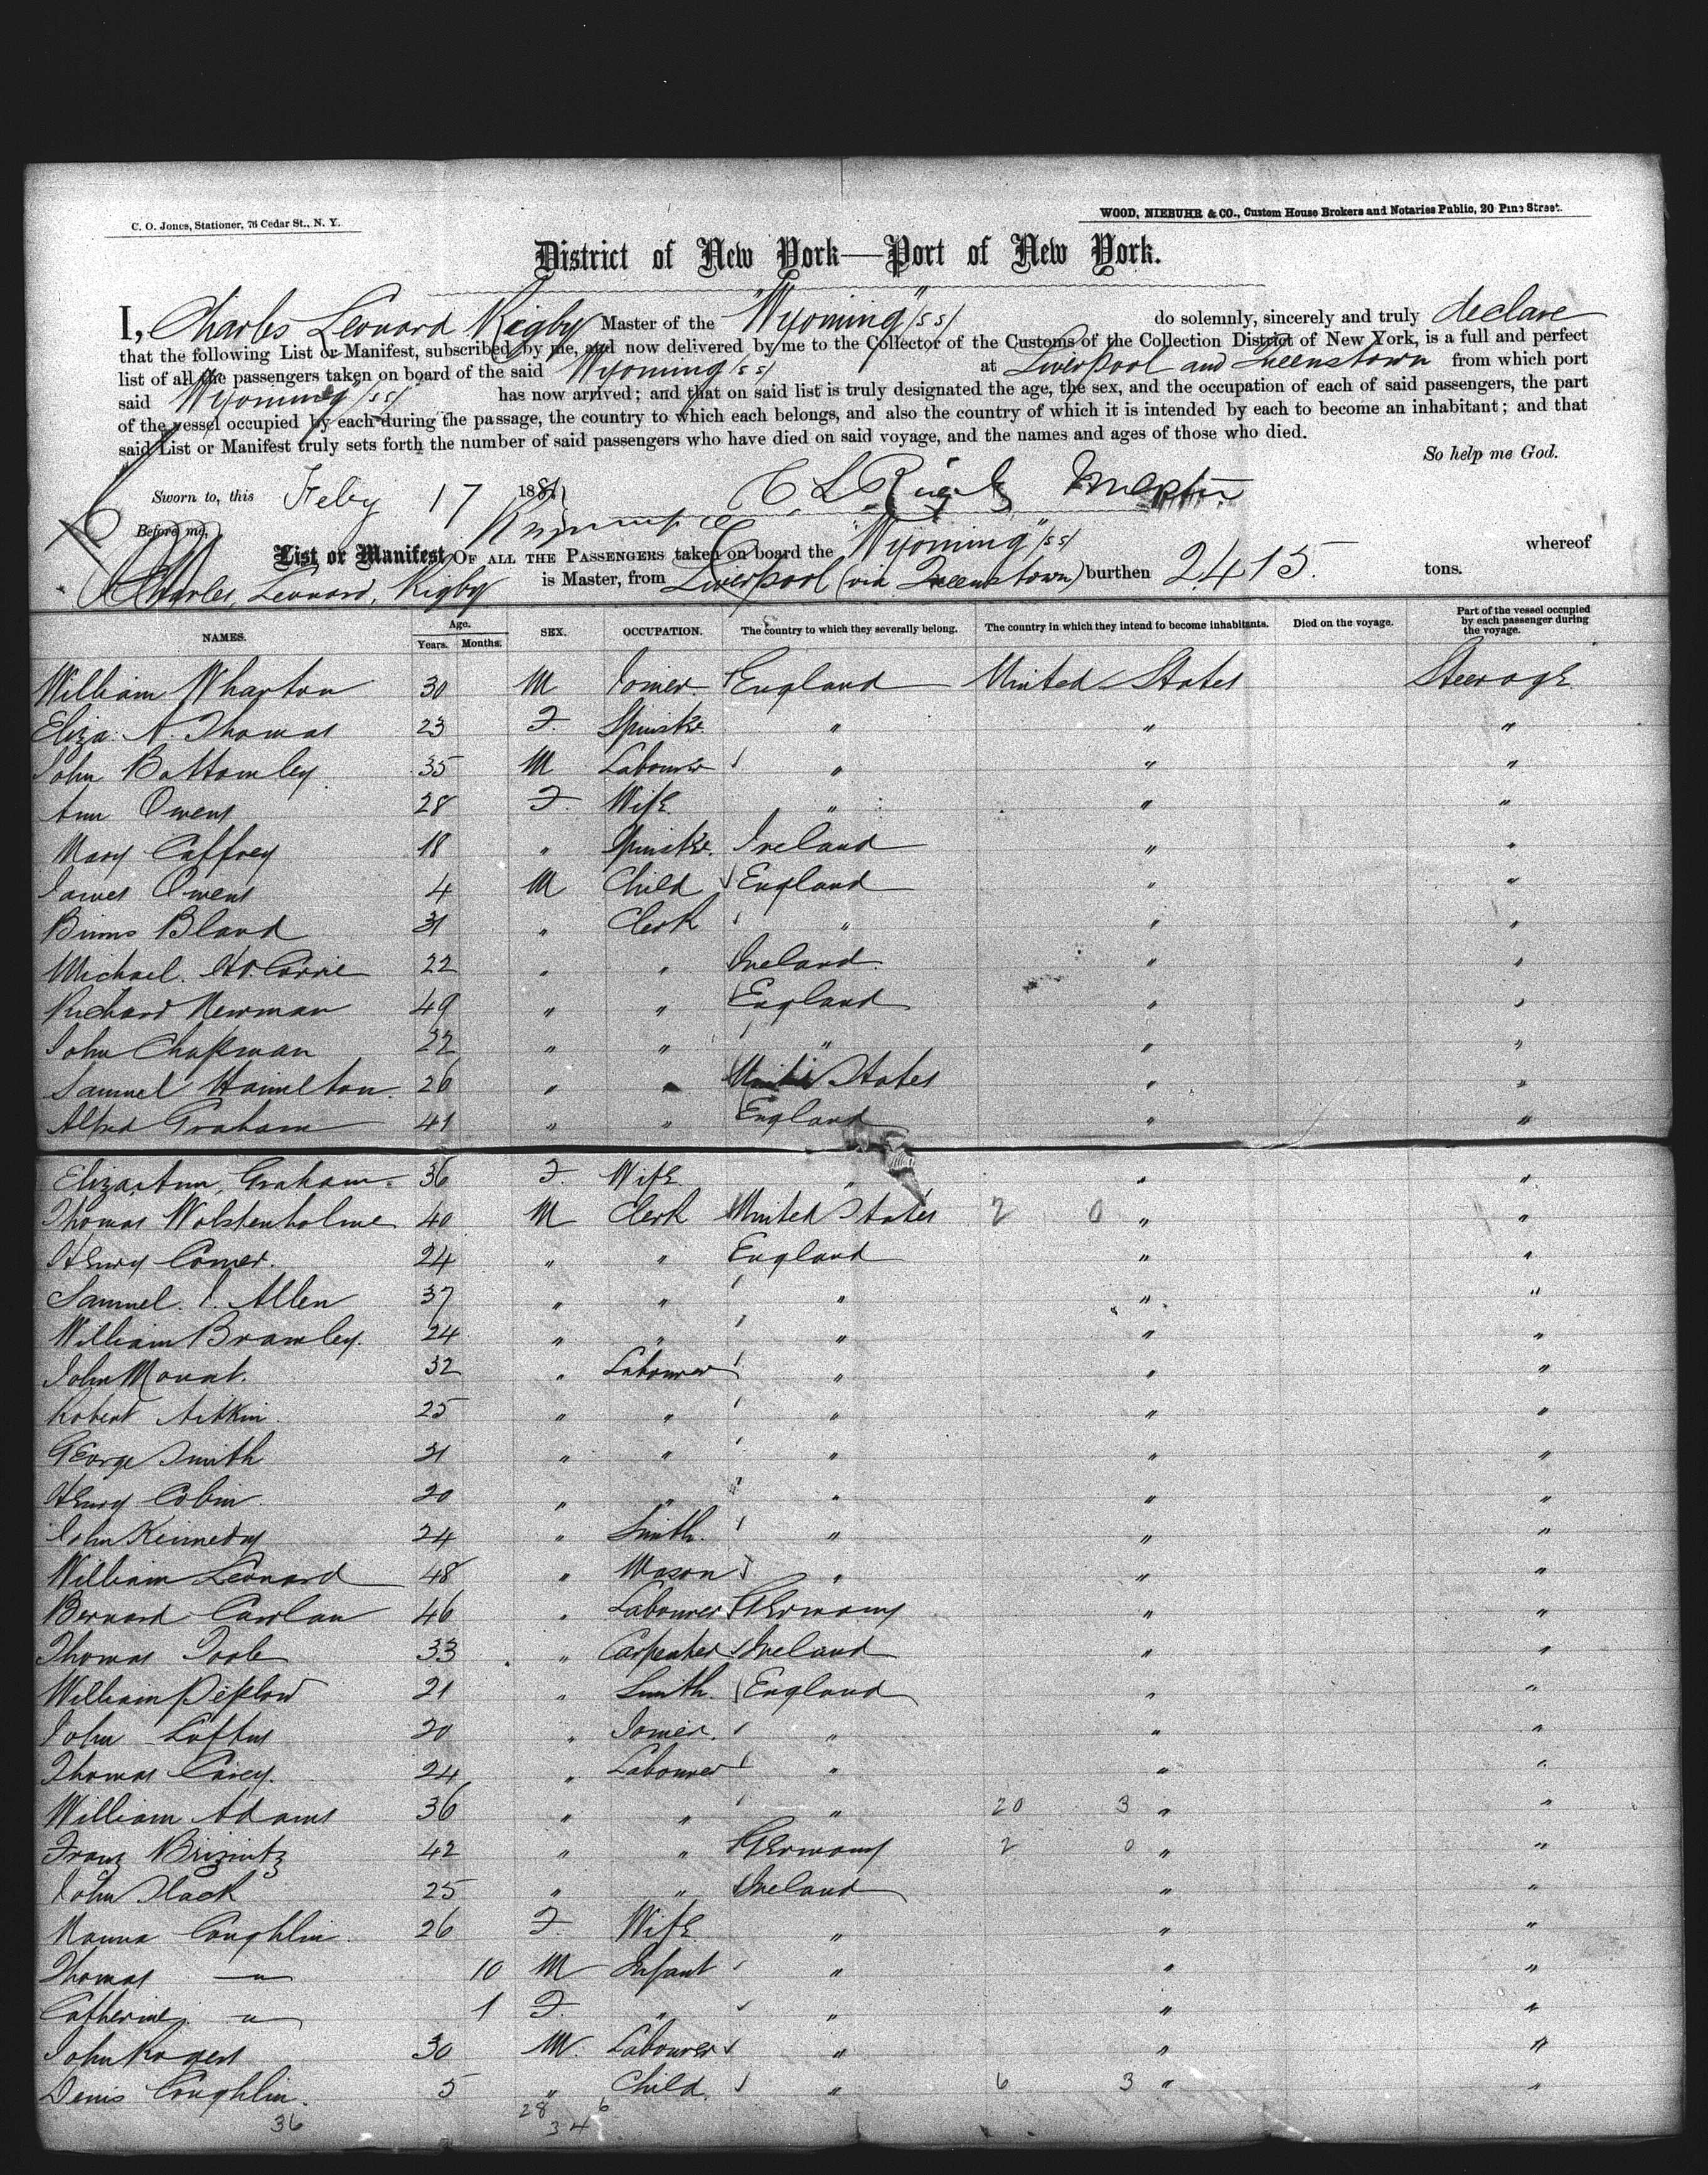 C. O. Jones, Stationer, 76 Cedar St., N. Y.
WOOD, NIEBUHR & CO., Custom House Brokers and Notaries Public, 20 Pine Street.
District of New York—Port of New York.
I, Charles Leonard Rigby Master of the "Wyoming" /ss/ do solemnly, sincerely and truly declare
that the following List or Manifest, subscribed by me, and now delivered by me to the Collector of the Customs of the Collection District of New York, is a full and perfect
list of all the passengers taken on board of the said Wyoming /ss/ at Liverpool and Queenstown from which port
said Wyoming /ss/ has now arrived; and that on said list is truly designated the age, the sex, and the occupation of each of said passengers, the part
of the vessel occupied by each during the passage, the country to which each belongs, and also the country of which it is intended by each to become an inhabitant; and that
said List or Manifest truly sets forth the number of said passengers who have died on said voyage, and the names and ages of those who died.
So help me God.
Sworn to, this Feby 17 188 C. L. Rigby Master
Before me,
List or Manifest OF ALL THE PASSENGERS taken on board the "Wyoming" /ss/ whereof
Charles, Leonard, Rigby is Master, from Liverpool (via Queenstown) burthen 2415. tons.
NAMES. Age. Years. Months. SEX. OCCUPATION. The country to which they severally belong. The country in which they intend to become inhabitants. Died on the voyage. Part of the vessel occupied by each passenger during the voyage.
William Wharton 30 M Joiner England United States Steerage
Eliza A. Thomas 23 F. Spinster " " "
John Bottomley 35 M Labourer " " "
Ann Owens 28 F. Wife " " "
Mary Caffrey 18 " Spinster Ireland " "
James Owens 4 M Child England " "
Binns Bland 31 " Clerk " " "
Michael 22 " " Ireland " "
Richard Newman 49 " " England " "
John Chapman 22 " " " " "
Samuel Hamilton 26 " " United States " "
Alfred Graham 41 " " England " "
Eliza Ann Graham 36 F. Wife " " "
Thomas Wolstenholme 40 M Clerk United States 2 0 " "
Henry Comer 24 " " England " "
Samuel I. Allen 37 " " " " "
William Bramley 24 " " " " "
John Mount 32 " Labourer " " "
Robert Aitkin 25 " " " " "
George Smith 31 " " " " "
Henry Cobin 20 " " " " "
John Kennedy 24 " Smith " " "
William Leonard 48 " Mason " " "
Bernard Carolan 46 " Labourer Germany " "
Thomas Toole 33 " Carpenter Ireland " "
William Peplow 21 " Smith England " "
John Loftus 20 " Joiner " " "
Thomas Carey 24 " Labourer " " "
William Adams 36 " " " 20 3 " "
Franz 42 " " Germany 2 0 " "
John Slack 25 " " Ireland " "
Coughlin 26 F. Wife " " "
Thomas — " — 10 M Infant " " "
Catherine — " — 1 F. " " " "
John Rogers 30 M Labourer " " "
Denis Coughlin 5 " Child " 6 3 " "
36 28 6
34